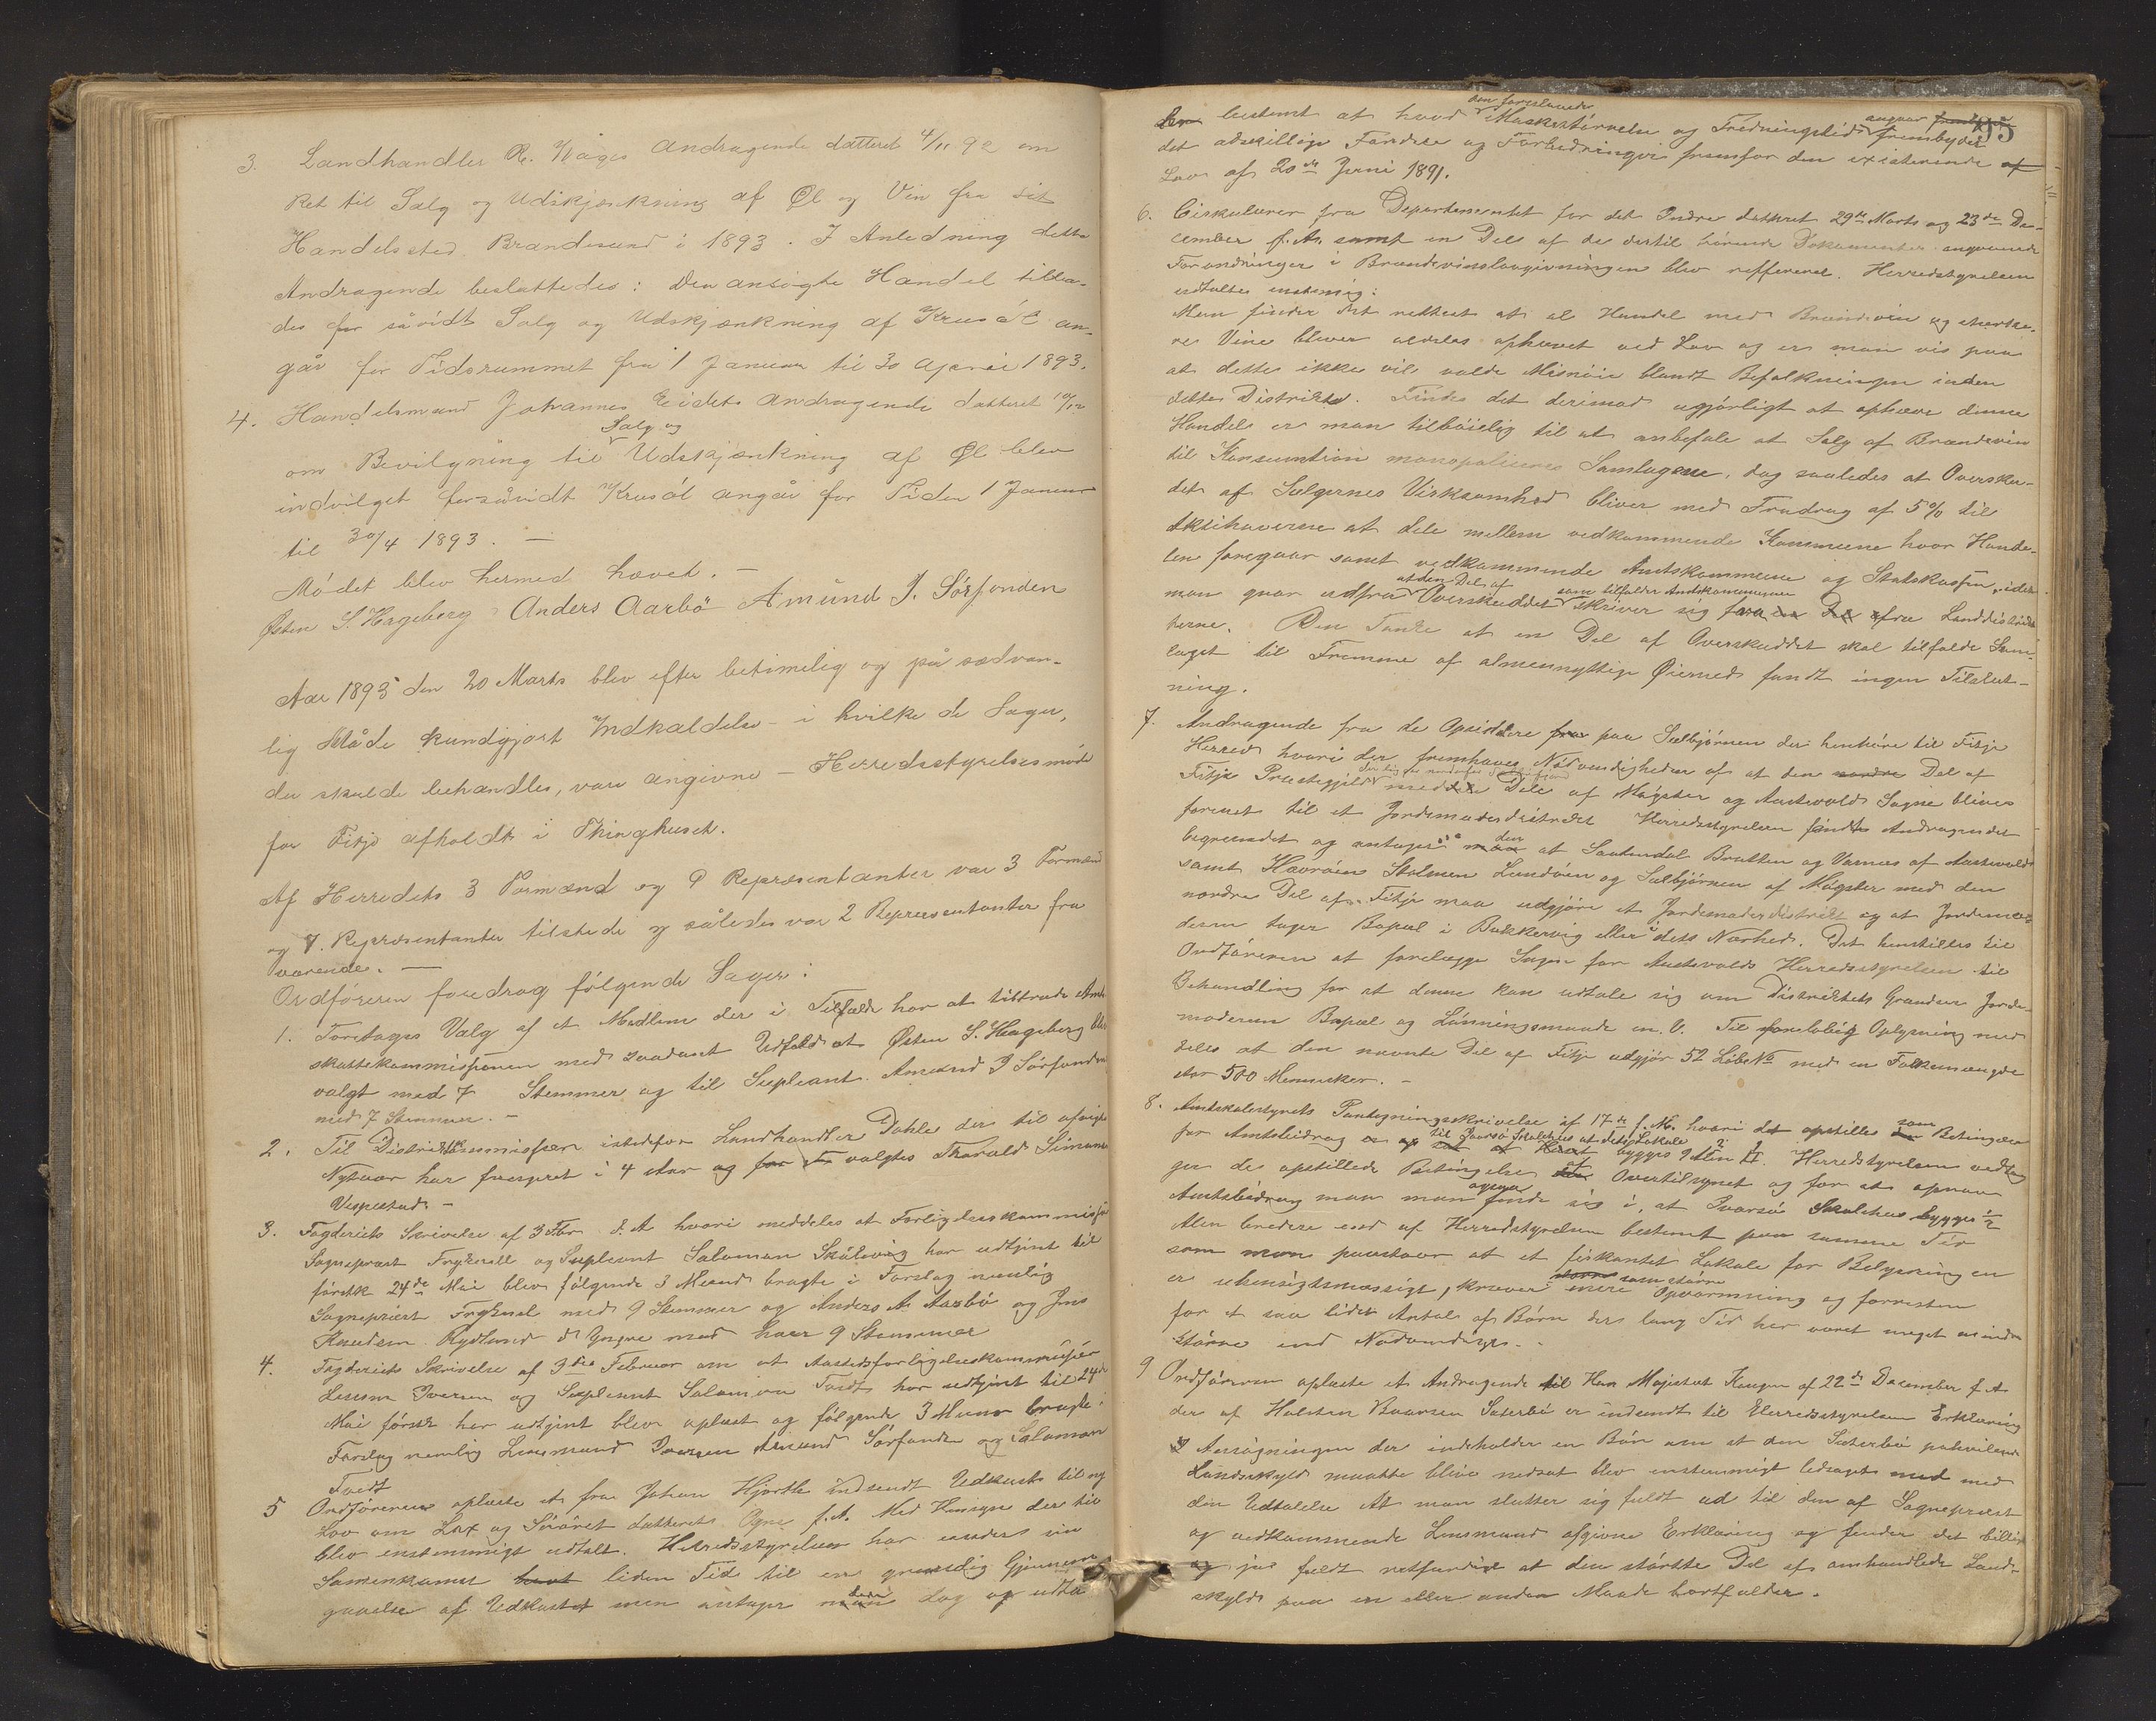 3. Landhandler R. Wåges Andragende datteret 4/11 92 om
Ret til Salg og Udskjænkning af Øl og Vin fra sit
Handelssted Brandesund i 1893. I Anledning dette
Andragende besluttedes: Den ansøgte Handel tilla-
des for såvidt Salg og Udskjænkning af Krusøl an-
går for Tidsrummet fra 1 Januar til 30 April 1893.
4. Handelsmand Johannes Eidets Andragende datteret 10/12
Salg og
om Bevilgning til Udskjænkning af Øl blev
indvilget forsåvidt Krusøl angår for Tiden 1 Januar
til 30/4 1893. –
Mødet blev hermed hævet. –
Østen S. Hageberg Anders Aarbø Amund J. Sørfonden
Aar 1893 den 20 Marts blev efter betimelig og på sædvan-
lig Måde kundgjort Indkaldelse – i hvilke de Sager,
der skulde behandles, vare angivne – Herredsstyrelsesmøde
for Fitje afholdt i Thinghuset.
Af Herredets 3 Formænd og 9 Repræsentanter var 3 Formænd
og 7. Repræsentanter tilstede og således var 2 Repræsentanter fra
værende. –
Ordføreren foredrog følgende Sager:
1. Foretoges Valg af et Medlem der i Tilfælde har at tiltræde Amts
skattekommissionen med saadant Udfald at Østen S. Hageberg blev
valgt med 7 Stemmer og til Supleant Amund J Sørfonden
med 7 Stemmer. –
2. Til Distriktskommissær istedefor Landhandler Dahle der til afvigte
Nytaar har fungeret i 4 Aar og valgtes Thorvald Simonsen
Vespestad –
3. Fogderiets Skrivelse af 3 Fbr. d. A hvori meddeles at Forligelseskommissær
Sogneprest Frykenell og Supleant Salomon Skålevig har udtjent til
førstk 24de Mai blev følgende 3 Mænd bragte i Forslag nemlig
Sogneprest med 9 Stemmer og Anders A. Aarbø og Jens
Knudsen Rydland d Yngre med hver 9 Stemmer
4. Fogderiets Skrivelse af 3die Februar om at Aastedsforligelseskommissær
Lensm Iversen og Supleant Salomon Tvedt har udtjent til 24de
Mai førstk har udtjent blev oplæst og følgende 3 Mænd bragte i
Forslag nemlig Lensmand Iversen Amund Sørfonden og Salomon
Tvedt
5 Ordføreren oplæste et fra Johan Hjorth indsendt Udkast til ny
Lov om Lax og Søøret datteret f.A. Med Hensyn der til
blev enstemmigt udtalt. Herredsstyrelsen har enders sin
Samenkomst havt liden Tid til en grundig Gjennem
gaaelse af Udkastet men antager den dog at udta
95
den foreslaaede angaar
bestemt at hvad Maskestørrelse og Fredningstid frembyder
det adskillige Fordele og Forbedringer fremfor den existerende af
Lov af 20de Juni 1891.
6. Cirkulærer fra Departementet for det Indre datteret 29de Marts og 23de De-
cember f. A. samt en Dels af de dertil hørende Dokumenter angaaende
Forandringer i Brændevinslovgivningen blev refereret. Herredsstyrelsen
udtalte enstemig:
Man finder det rettest at al Handel med Brændevin og stærke-
re Vine bliver aldeles ophævet ved Lov og er man vis paa
at dette ikke vil volde Misnøie blandt Befolkningen inden
dette Distrikt. Findes det derimod ugjørligt at ophæve denne
Handel er man tilbøielig til at anbefale at Salg af Brændevin
til Konsumtion monopoliseres Samlagene, dog saaledes at Oversku-
det af Sælgernes Virksomhed bliver med Fradrag af 5% til
Aktihaverne at dele mellem vedkommende Kommune hvor Hande-
len foregaar samt vedkommende Amtskommune og Statskassen, idet
at den Del af som tilfalder Amtskommunen
man gaar udfra Overskuddet skriver sig fra Landdistrik
terne. Den Tanke at en Del af Overskuddet skal tilfalde Sam-
laget til Fremme af almennyttige Øiemed fandt ingen Tilslut-
ning.
7. Andragende fra de Opsiddere paa Selbjørnen der henhøre til Fitje
Herred hvori der fremhæves Nødvendigheden af at den Del af
Fitje Præstegjeld med Dele af Møgster og Austevold Sogne blives
forenet til et Jordemoderdistrikt Herredsstyrelsen fandt Andragendet
begrundet og antager den at Bratten og Vænnes af Austevold
samt Havrøen Stolmen Lundøen og Selbjørnen af Møgster med den
nordre Del af Fitje maa udgjøre et Jordemoderdistrikt og at Jordemo-
deren tager Bopæl i Bækkervig eller dets Nærhed. Det henstilles til
Ordføreren at forelægge Sagen for Austevolds Herredsstyrelse til
Behandling for at denne kan udtale sig om Distriktets Grændser Jorde-
moderens Bopæl og Lønningsmaade m.V. Til foreløbig Oplysning med
deles at den nævnte Del af Fitje udgjør 52 Løbe No med en Folkemængde
stor 500 Mennesker. –
8. Amtskolestyrets Paategningsskrivelse af 17de f.M. hvori det opstilles som Betingelse
til Ivarsø Skolehus at dets Lokale
for Amtsbidrag bygges 9 Alen Herredsstyrelsen vedtog
den opstillede Betingelse Overtilsynet og for at opnaa
ogsaa
Amtsbidrag maa man finde sig i, at Ivarsø Skolehus bygges 1/2
Alen bredere end af Herredsstyrelsen bestemt paa samme Tid
som man paastaar at et firkantet Lokale for Belysningen
som større
er uhensigtsmæssigt, kræver Opvarmning og forresten
for et saa lidet Antal af Børn ders lang Tid har været meget mindre
større end Nødvendigt. –
9 Ordføreren oplæste et Andragende til Hans Majestæt Kongen af 22de December f. A
der af Halsten Baarsen Sæterbø er indsendt til Herredsstyrelsens Erklæring
Ansøgningen der indeholder en Bøn om at den Sæterbø paahvilende
Landskyld maatte blive nedsat blev enstemmigt ledsaget med
den Udtalelse At man slutter sig fuldt ud til den af Sogneprest
og vedkommende Lensmand afgivne Erklæring og finder det billigt
og jae fuldt retfærdigt at den største Del af omhandlede Land-
skyld paa en eller anden Maade bortfalder.